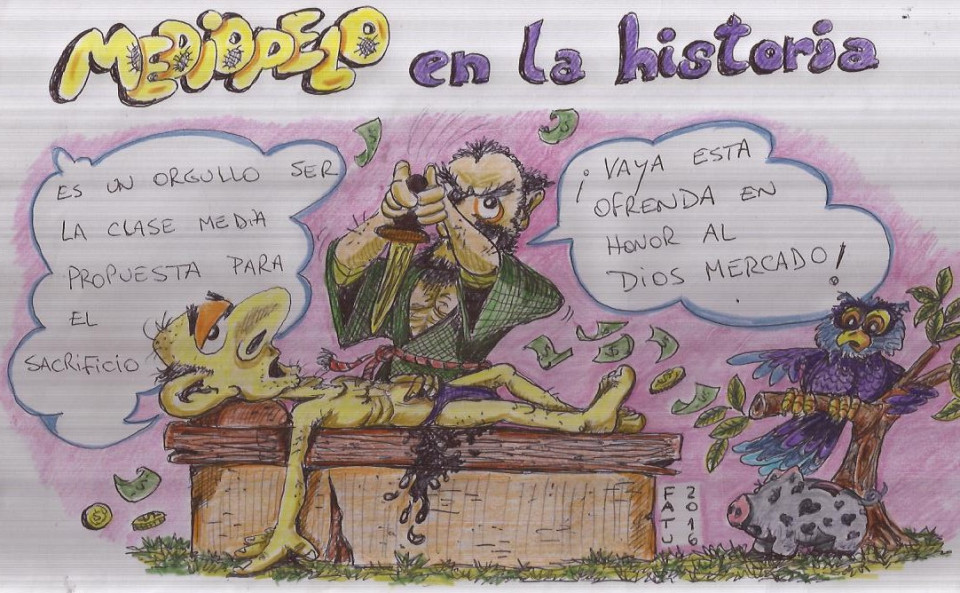 MEDIOPELO en la historia
ES UN ORGULLO SER
LA CLASE MEDIA
PROPUESTA PARA
EL
SACRIFICIO
¡VAYA ESTA
OFRENDA EN
HONOR AL
DIOS MERCADO!
FATU
2016